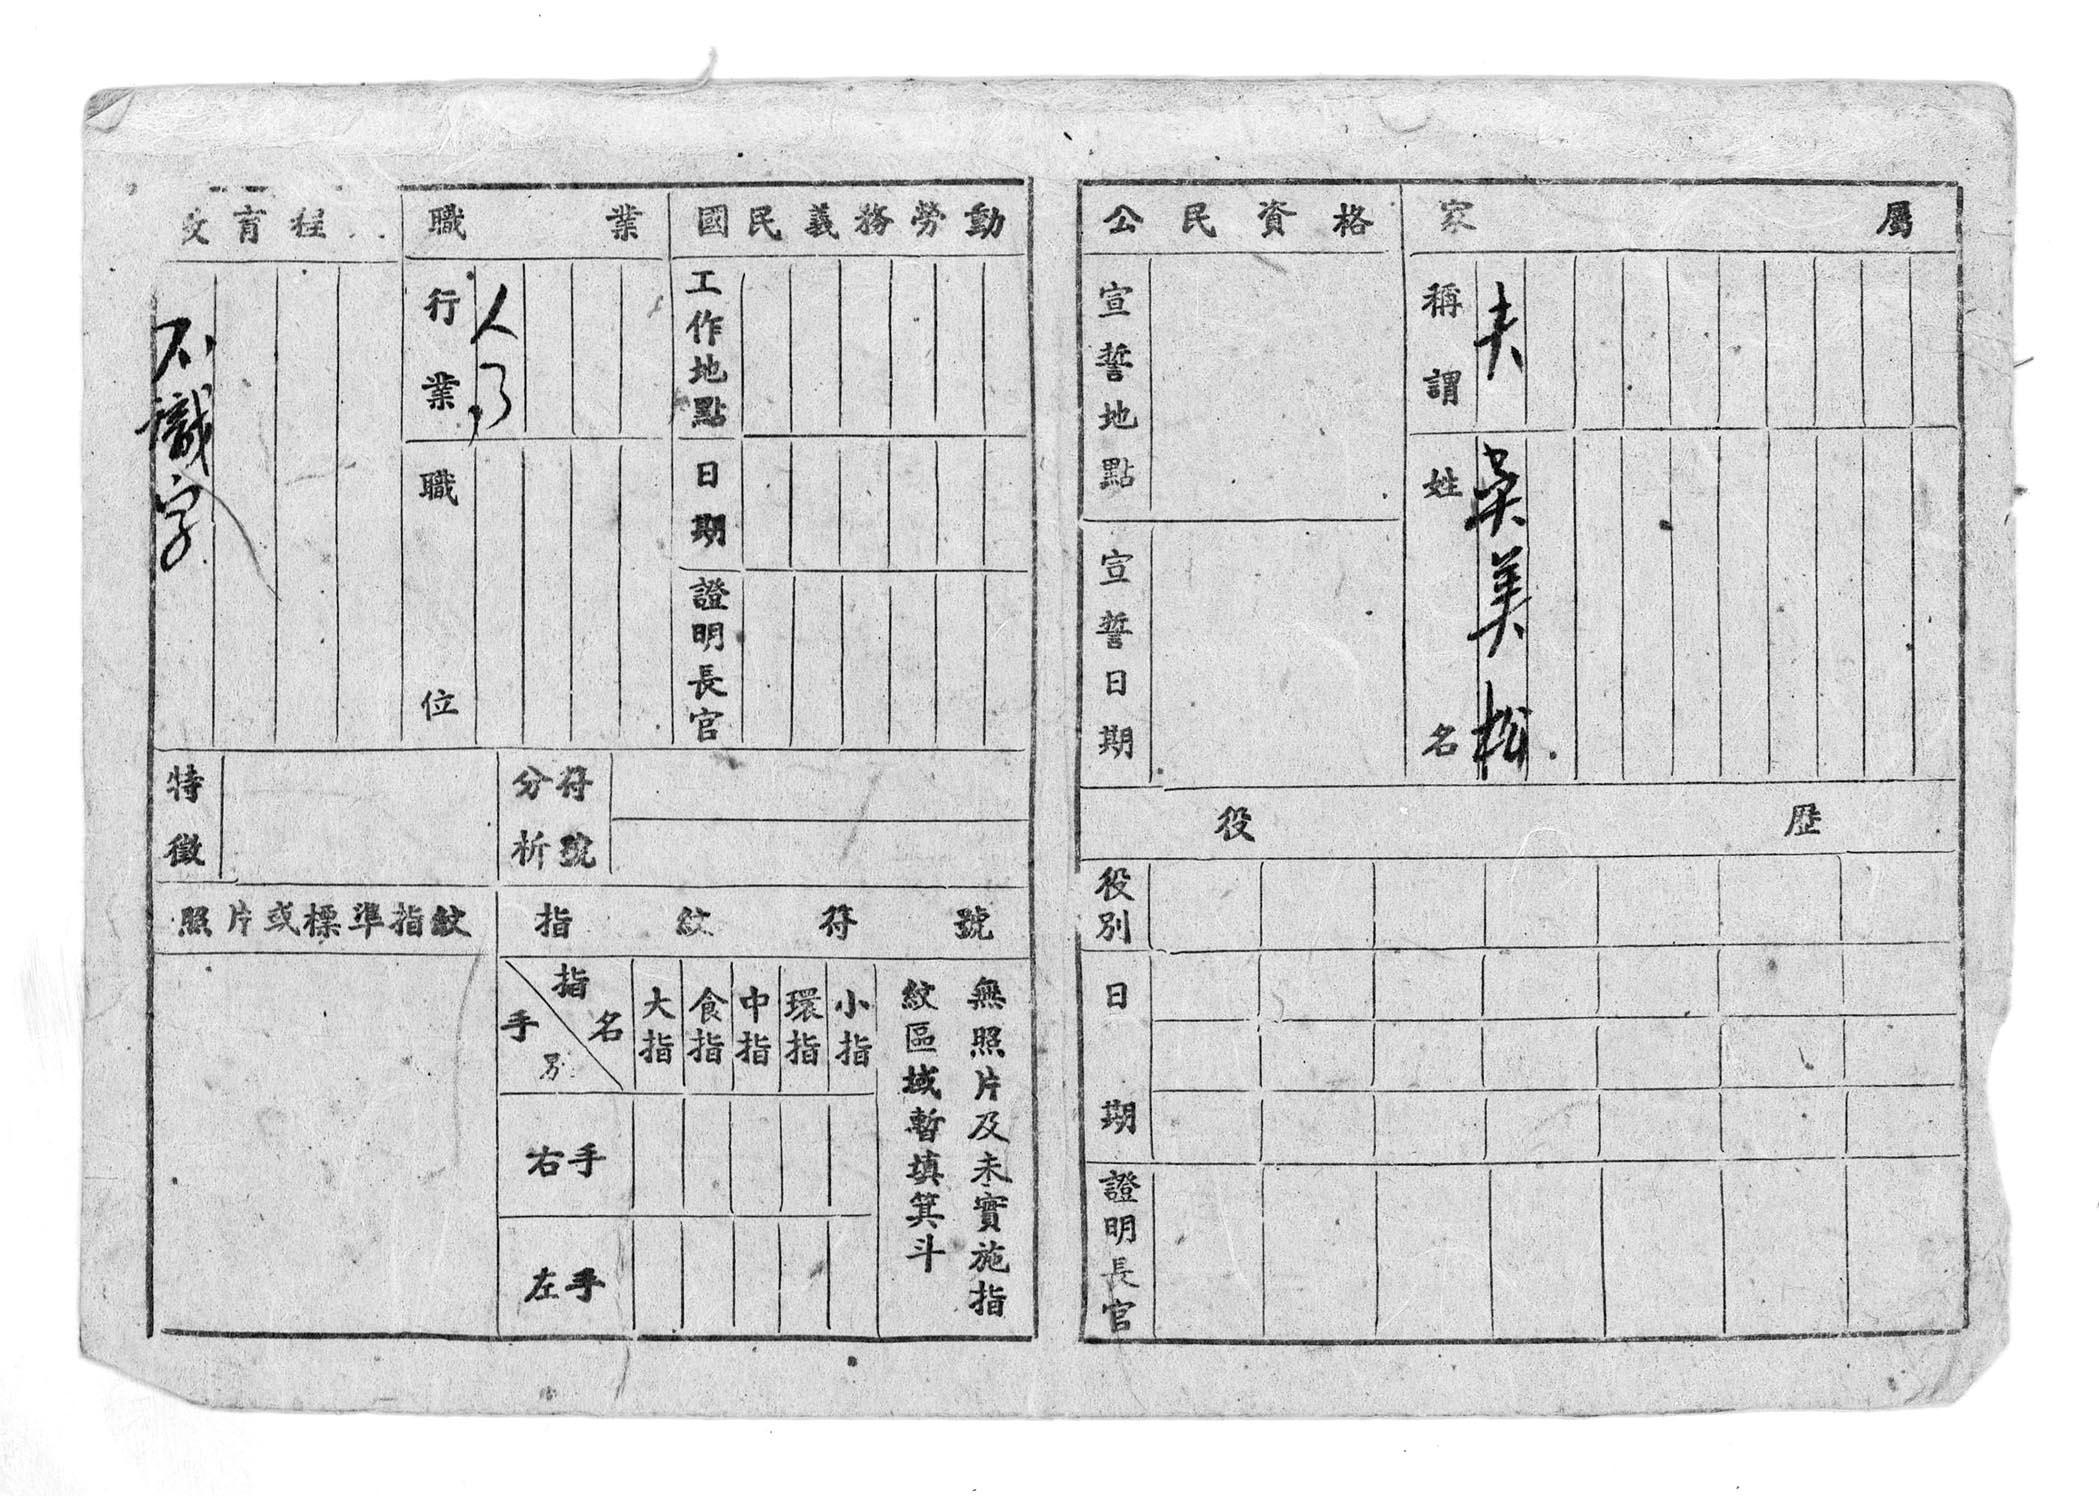 公民資格
宣誓地點
宣誓日期
家屬
稱謂
夫
姓名
吳美松
役歷
役別
日期
證明長官
育程
不識字
職業
行業
人
職位
國民義務勞動
工作地點
日期
證明長官
特徵
符號分析
照片或標準指紋
指紋符號
指名
手別
大指
食指
中指
環指
小指
右手
左手
無照片及未實施指
紋區域暫填箕斗